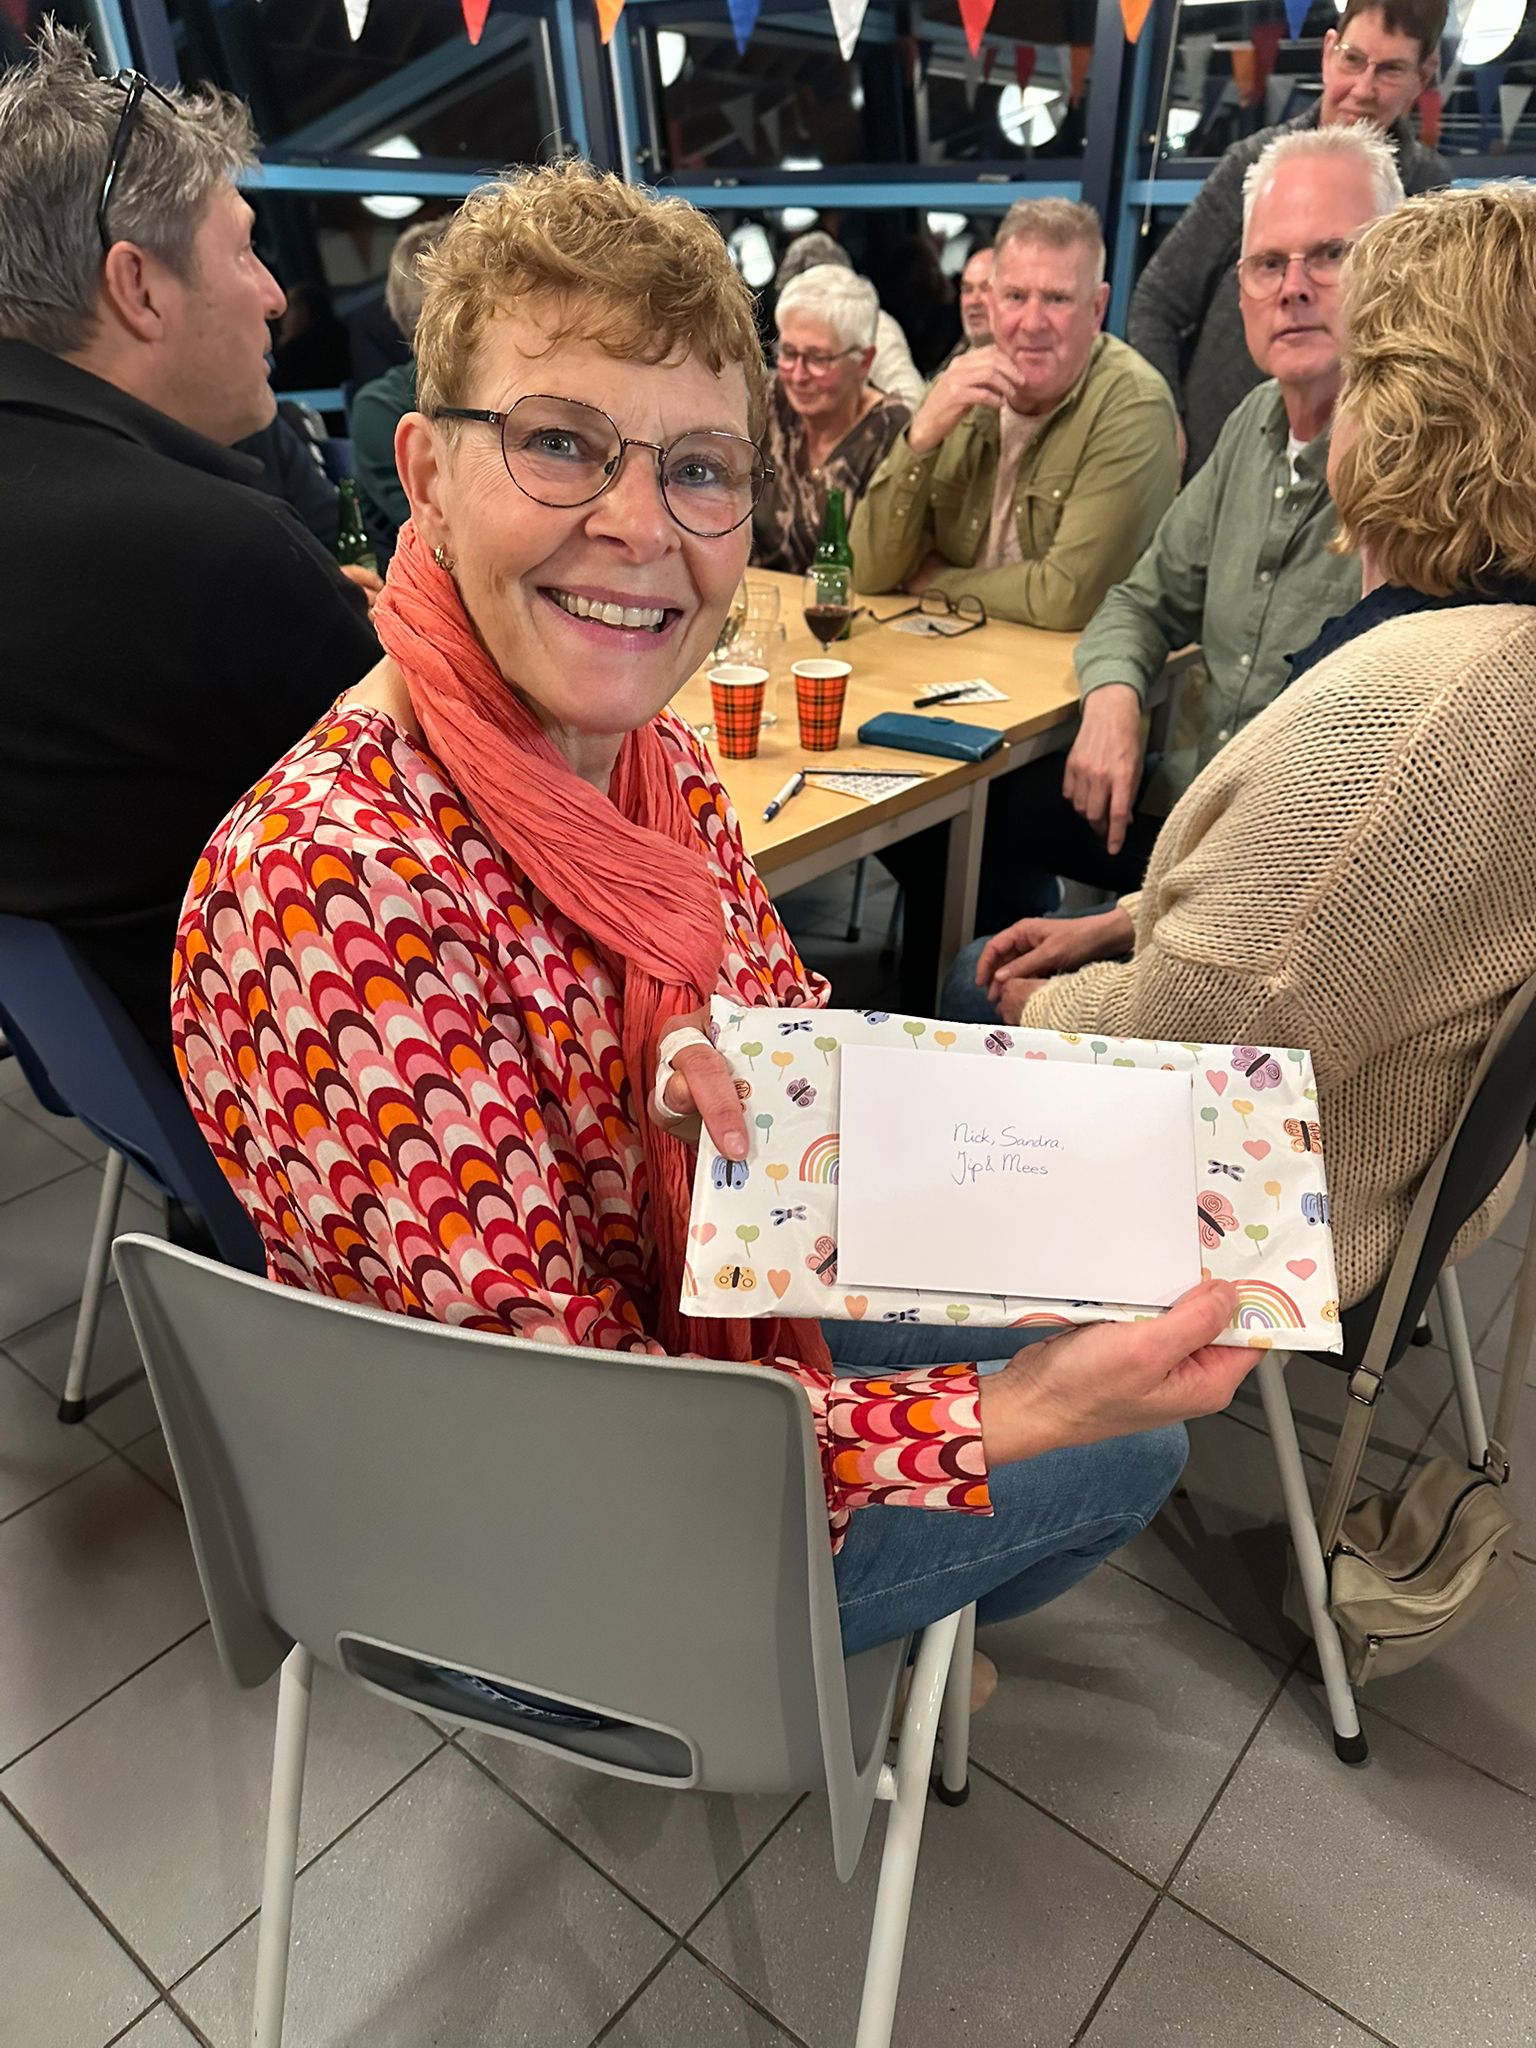 Nick, Sandra,
Jip & Mees